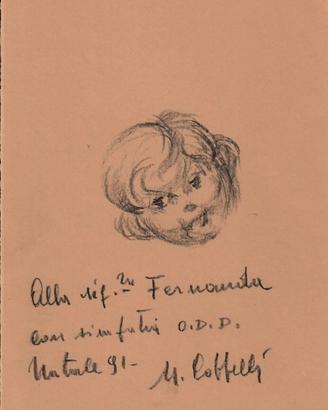 Alla sig.ra Fernanda
con simpatia O.D.D.
Natale 91- M.